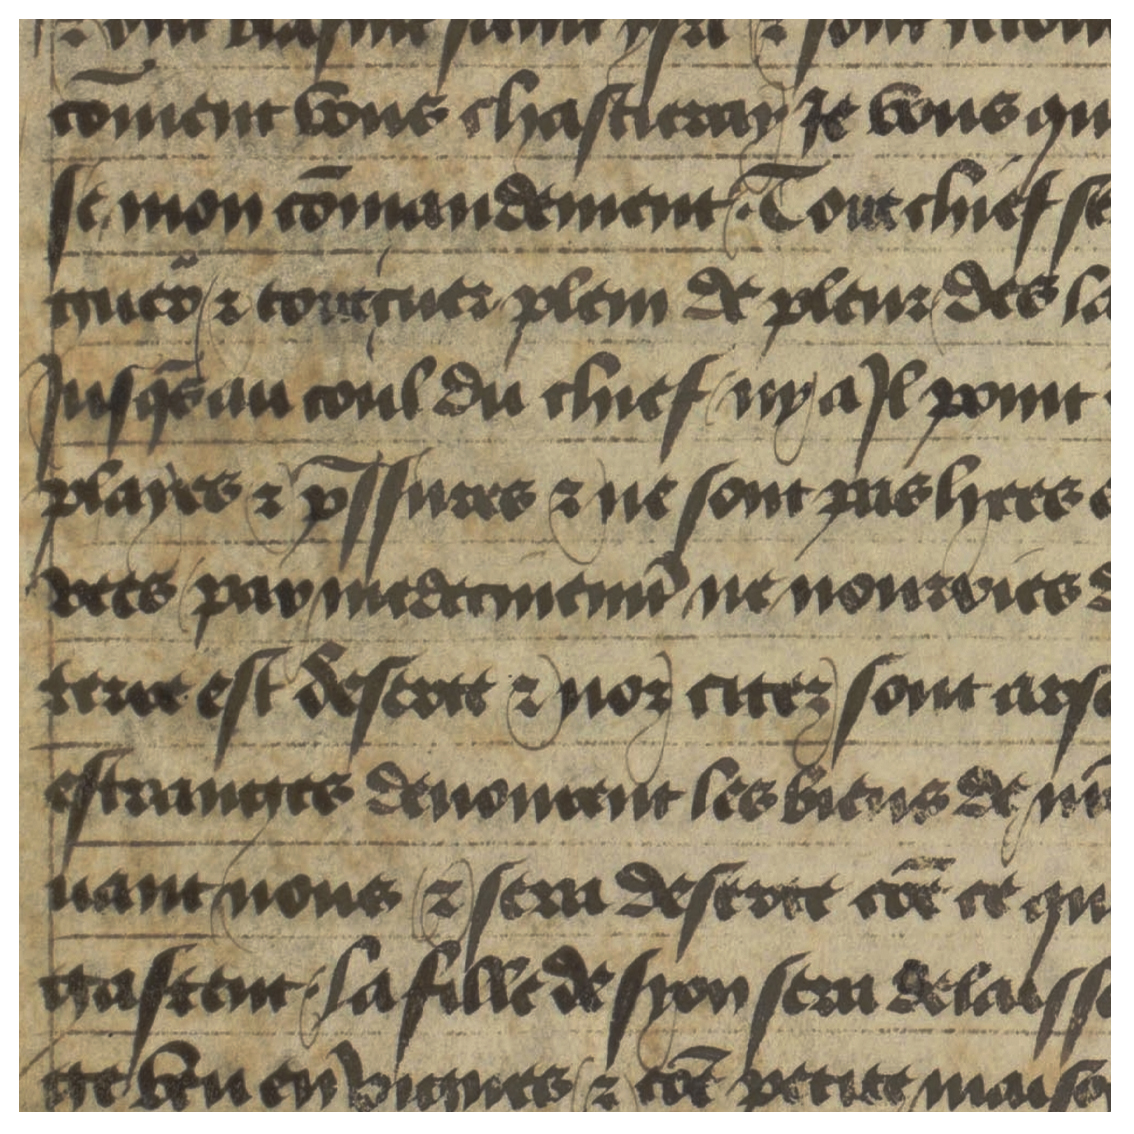 cōment vous chastieray Je vous qu
se mon cōmandement. Tout chief se
⁊ tout cuer plein de pleur des la
Jusq̄s au coul du chief ny a Jl point
playes ⁊ ne sont pas liees
ne nourries d
terre est deserte ⁊ noz citez sont arse
estranges les biens de
uant nous ⁊ sera deserte cōe ce qu
gastent. La fille de syon sera delaisse
en vignes ⁊ cōe petite maiso